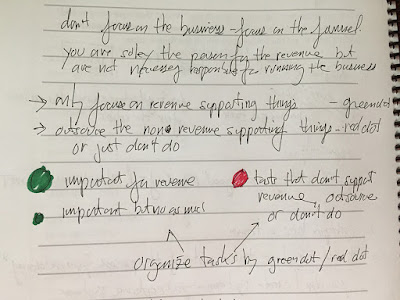 don't focus on the business - focus on the funnel.
you are soley the person for the revenue but
are not necessary responsible for running the business
→ only focus on revenue supporting things - green dot
→ outsource the non revenue supporting things - red dot
or just don't do
important for revenue
important but no as much
tasks that don't support
revenue, outsource
or don't do
organize tasks by green dot / red dot